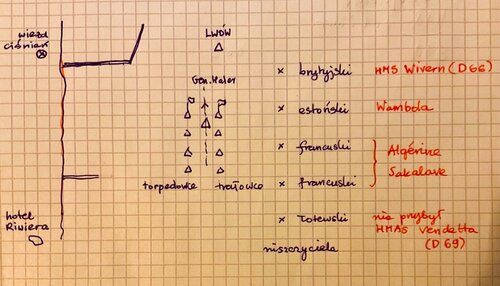 wieża
ciśnień
LWÓW
Gen. Haller
torpedowce
trałowce
hotel
Riwiera
x brytyjski
x estoński
x francuski
x francuski
x łotewski
niszczyciela
HMS Wivern (D66)
Wambola
Algérine
Sakalave
nie przybył
HMAS Vendetta
(D69)